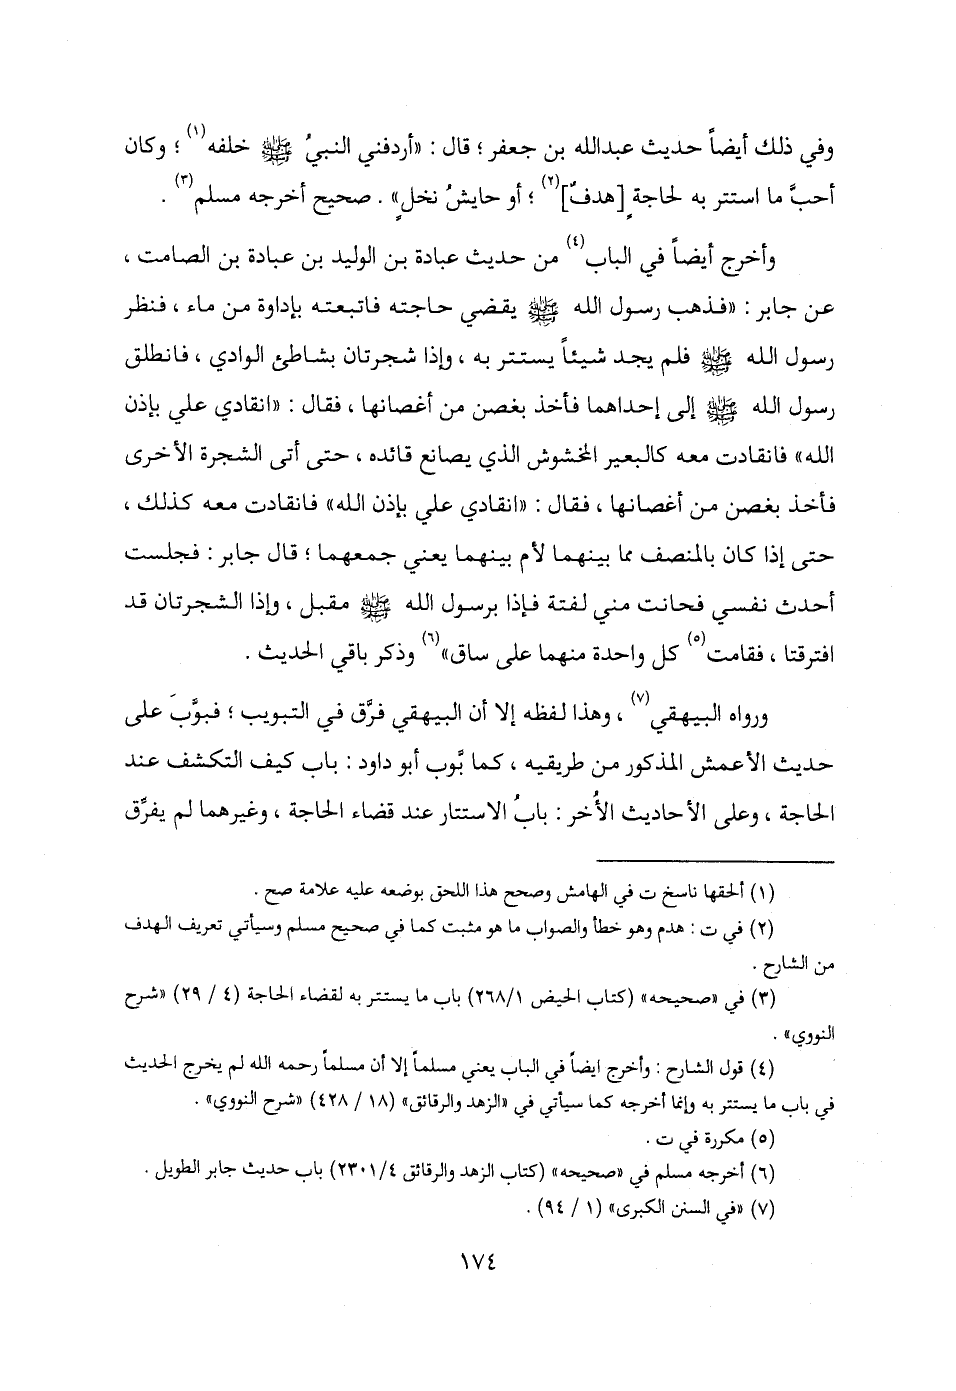 وفي ذلك أيضاً حديث عبدالله بن جعفر ؛ قال : «أردفني النبيُ ﷺ خلفه(١) ؛ وكان
أحبَّ ما استتر به لحاجةٍ [هدفٌ](٢) ؛ أو حايشُ نخلٍ» . صحيح أخرجه مسلم(٣) .
وأخرج أيضاً في الباب(٤) من حديث عبادة بن الوليد بن عبادة بن الصامت ،
عن جابر : «فذهب رسول الله ﷺ يقضي حاجته فاتبعته بإداوة من ماء ، فنظر
رسول الله ﷺ فلم يجد شيئاً يستتر به ، وإذا شجرتان بشاطئ الوادي ، فانطلق
رسول الله ﷺ إلى إحداهما فأخذ بغصن من أغصانها ، فقال : «انقادي علي بإذن
الله» فانقادت معه كالبعير المخشوش الذي يصانع قائده ، حتى أتى الشجرة الأخرى
فأخذ بغصن من أغصانها ، فقال : «انقادي علي بإذن الله» فانقادت معه كذلك ،
حتى إذا كان بالمنصف مما بينهما لأم بينهما يعني جمعهما ؛ قال جابر : فجلست
أحدث نفسي فحانت مني لفتة فإذا برسول الله ﷺ مقبل ، وإذا الشجرتان قد
افترقتا ، فقامت(٥) كل واحدة منهما على ساق»(٦) وذكر باقي الحديث .
ورواه البيهقي(٧) ، وهذا لفظه إلا أن البيهقي فرَّق في التبويب ؛ فبوَّبَ على
حديث الأعمش المذكور من طريقيه ، كما بَّوب أبو داود : باب كيف التكشف عند
الحاجة ، وعلى الأحاديث الأُخر : بابُ الاستتار عند قضاء الحاجة ، وغيرهما لم يفرِّق
(١) ألحقها ناسخ ت في الهامش وصحح هذا اللحق بوضعه عليه علامة صح .
(٢) في ت : هدم وهو خطأ والصواب ما هو مثبت كما في صحيح مسلم وسيأتي تعريف الهدف
من الشارح .
(٣) في «صحيحه» (كتاب الحيض ٢٦٨/١) باب ما يستتر به لقضاء الحاجة (٤ / ٢٩) «شرح
النووي» .
(٤) قول الشارح : وأخرج ايضاً في الباب يعني مسلماً إلا أن مسلماً رحمه الله لم يخرج الحديث
في باب ما يستتر به وإنما أخرجه كما سيأتي في «الزهد والرقائق» (١٨ / ٤٢٨) «شرح النووي» .
(٥) مكررة في ت .
(٦) أخرجه مسلم في «صحيحه» (كتاب الزهد والرقائق ٢٣٠١/٤) باب حديث جابر الطويل .
(٧) «في السنن الكبرى» (١ / ٩٤) .
١٧٤